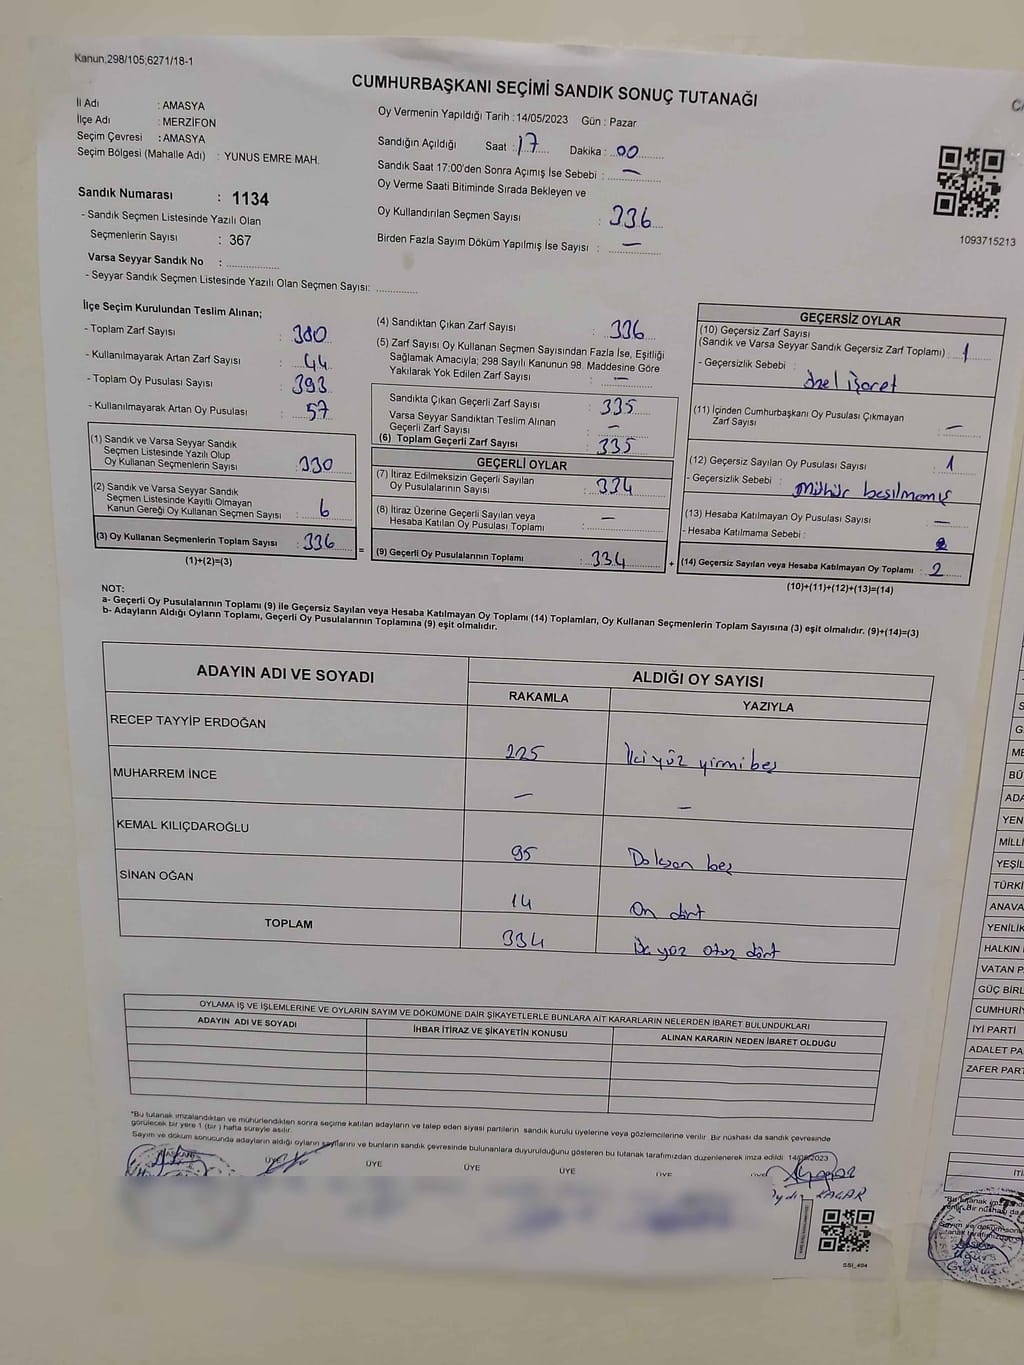 Kanun,298/105;6271/18-1
CUMHURBAŞKANI SEÇİMİ SANDIK SONUÇ TUTANAĞI
İl Adı : AMASYA
İlçe Adı : MERZİFON
Seçim Çevresi : AMASYA
Seçim Bölgesi (Mahalle Adı) : YUNUS EMRE MAH.
Sandık Numarası : 1134
- Sandık Seçmen Listesinde Yazılı Olan
Seçmenlerin Sayısı : 367
Varsa Seyyar Sandık No :
- Seyyar Sandık Seçmen Listesinde Yazılı Olan Seçmen Sayısı:
Oy Vermenin Yapıldığı Tarih :14/05/2023 Gün : Pazar
Sandığın Açıldığı Saat : 17 Dakika : 00
Sandık Saat 17:00'den Sonra Açımış İse Sebebi : —
Oy Verme Saati Bitiminde Sırada Bekleyen ve
Oy Kullandırılan Seçmen Sayısı : 336
Birden Fazla Sayım Döküm Yapılmış İse Sayısı : —
1093715213
İlçe Seçim Kurulundan Teslim Alınan;
- Toplam Zarf Sayısı : 380
- Kullanılmayarak Artan Zarf Sayısı : 44
- Toplam Oy Pusulası Sayısı : 393
- Kullanılmayarak Artan Oy Pusulası : 57
(1) Sandık ve Varsa Seyyar Sandık
Seçmen Listesinde Yazılı Olup
Oy Kullanan Seçmenlerin Sayısı : 330
(2) Sandık ve Varsa Seyyar Sandık
Seçmen Listesinde Kayıtlı Olmayan
Kanun Gereği Oy Kullanan Seçmen Sayısı : 6
(3) Oy Kullanan Seçmenlerin Toplam Sayısı : 336
(1)+(2)=(3)
=
(4) Sandıktan Çıkan Zarf Sayısı : 336
(5) Zarf Sayısı Oy Kullanan Seçmen Sayısından Fazla İse, Eşitliği
Sağlamak Amacıyla; 298 Sayılı Kanunun 98. Maddesine Göre
Yakılarak Yok Edilen Zarf Sayısı : —
Sandıkta Çıkan Geçerli Zarf Sayısı : 335
Varsa Seyyar Sandıktan Teslim Alınan
Geçerli Zarf Sayısı : —
(6) Toplam Geçerli Zarf Sayısı : 335
GEÇERLİ OYLAR
(7) İtiraz Edilmeksizin Geçerli Sayılan
Oy Pusulalarının Sayısı : 334
(8) İtiraz Üzerine Geçerli Sayılan veya
Hesaba Katılan Oy Pusulası Toplamı : —
(9) Geçerli Oy Pusulalarının Toplamı : 334
+
GEÇERSİZ OYLAR
(10) Geçersiz Zarf Sayısı
(Sandık ve Varsa Seyyar Sandık Geçersiz Zarf Toplamı) : 1
- Geçersizlik Sebebi : özel işaret
(11) İçinden Cumhurbaşkanı Oy Pusulası Çıkmayan
Zarf Sayısı : —
(12) Geçersiz Sayılan Oy Pusulası Sayısı : 1
- Geçersizlik Sebebi : mühür basılmamış
(13) Hesaba Katılmayan Oy Pusulası Sayısı : —
- Hesaba Katılmama Sebebi :
(14) Geçersiz Sayılan veya Hesaba Katılmayan Oy Toplamı : 2
(10)+(11)+(12)+(13)=(14)
NOT:
a- Geçerli Oy Pusulalarının Toplamı (9) ile Geçersiz Sayılan veya Hesaba Katılmayan Oy Toplamı (14) Toplamları, Oy Kullanan Seçmenlerin Toplam Sayısına (3) eşit olmalıdır. (9)+(14)=(3)
b- Adayların Aldığı Oyların Toplamı, Geçerli Oy Pusulalarının Toplamına (9) eşit olmalıdır.
ADAYIN ADI VE SOYADI ALDIĞI OY SAYISI
RAKAMLA YAZIYLA
RECEP TAYYİP ERDOĞAN 225 İki yüz yirmi beş
MUHARREM İNCE — —
KEMAL KILIÇDAROĞLU 95 Doksan beş
SİNAN OĞAN 14 On dört
TOPLAM 334 Üç yüz otuz dört
OYLAMA İŞ VE İŞLEMLERİNE VE OYLARIN SAYIM VE DÖKÜMÜNE DAİR ŞİKAYETLERLE BUNLARA AİT KARARLARIN NELERDEN İBARET BULUNDUKLARI
ADAYIN ADI VE SOYADI İHBAR İTİRAZ VE ŞİKAYETİN KONUSU ALINAN KARARIN NEDEN İBARET OLDUĞU
*Bu tutanak imzalandıktan ve mühürlendikten sonra seçime katılan adayların ve talep eden siyasi partilerin sandık kurulu üyelerine veya gözlemcilerine verilir. Bir nüshası da sandık çevresinde
görülecek bir yere 1 (bir) hafta süreyle asılır.
Sayım ve döküm sonucunda adayların aldığı oyların sayılarını ve bunların sandık çevresinde bulunanlara duyurulduğunu gösteren bu tutanak tarafımızdan düzenlenerek imza edildi 14/05/2023
BAŞKAN ÜYE ÜYE ÜYE ÜYE ÜYE ÜYE
Aydın KAÇAR
SSI_404
YENİ
MİLLİ
YEŞİL
TÜRKİ
ANAVA
YENİLİK
HALKIN
VATAN P
GÜÇ BİRL
CUMHURİY
İYİ PARTİ
ADALET PA
ZAFER PART